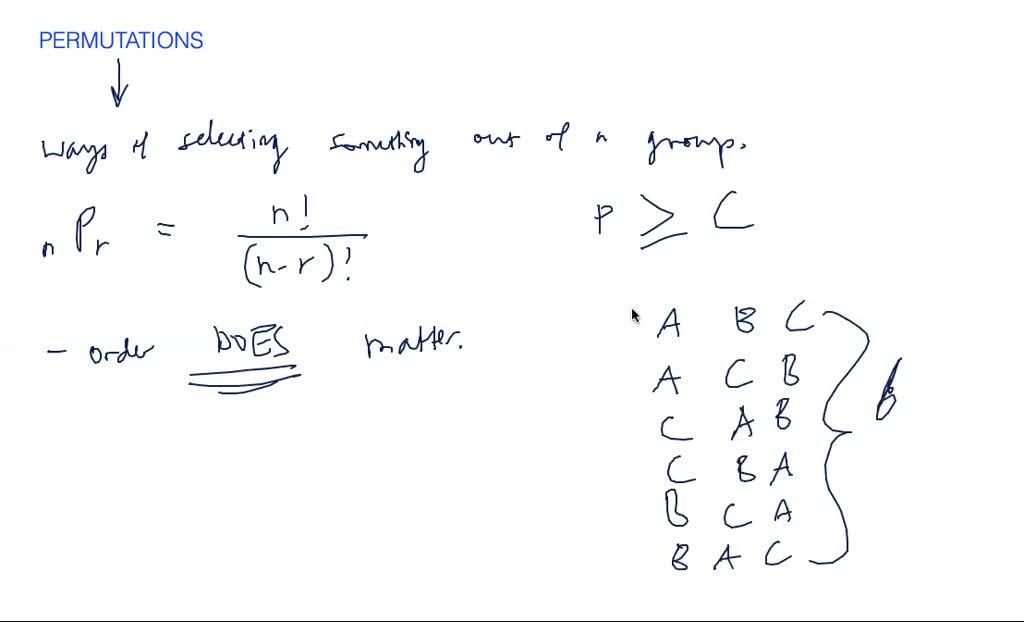 PERMUTATIONS
ways of selecting something out of a group.
nPr = n! / (n-r)!
P ≥ C
- order DOES matter.
A B C
A C B
C A B
C B A
B C A
B A C
6